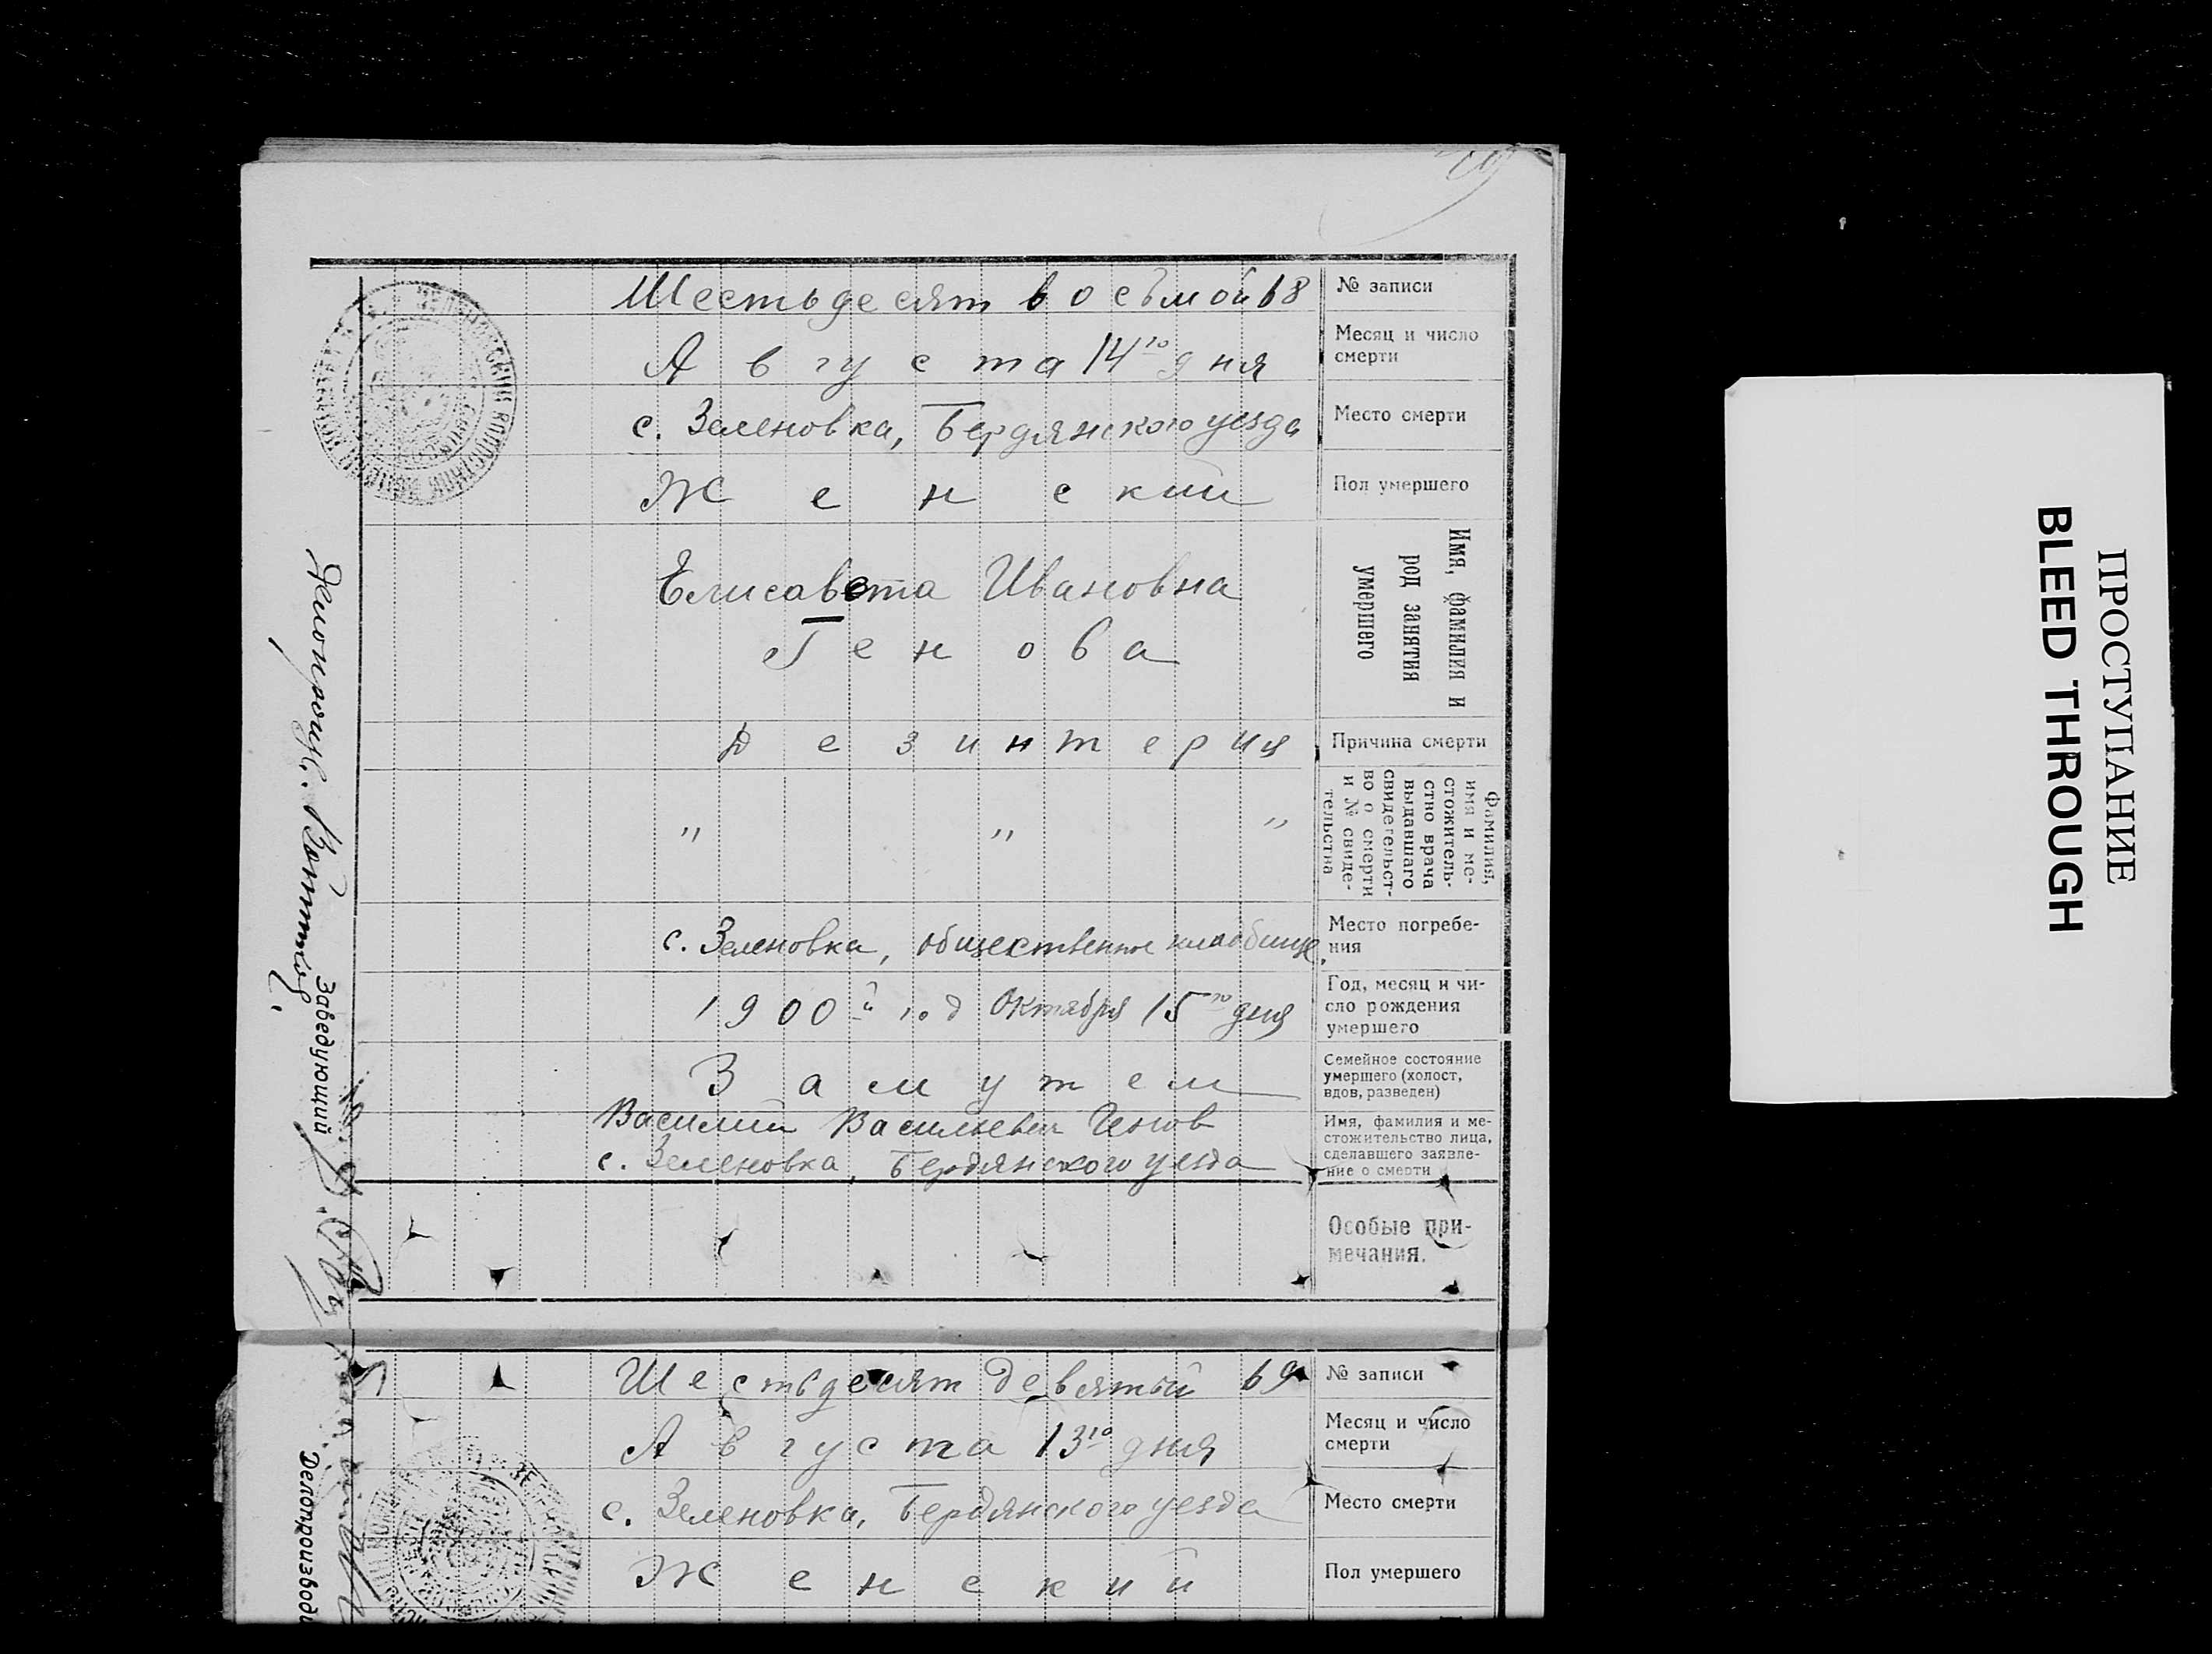 Шестьдесят восьмой 68
№ записи
Августа 14го дня
Месяц и число
смерти
с. Зеленовка, Бердянского уезда
Место смерти
Женский
Пол умершего
Елисавета Ивановна
Генова
Имя, фамилия и
род занятия
умершего
Дезинтерия
Причина смерти
" " "
Фамилия,
имя и ме-
стожитель-
ство врача
выдавшего
свидетельст-
во о смерти
и № свиде-
тельства
с. Зеленовка, общественное кладбище,
Место погребе-
ния
1900й год Октября 15го дня
Год, месяц и чи-
сло рождения
умершего
Замужем
Семейное состояние
умершего (холост,
вдов, разведен)
Василий Васильевич Генов
с. Зеленовка, Бердянского уезда
Имя, фамилия и ме-
стожительство лица,
сделавшего заявле-
ние о смерти
Особые при-
мечания.
Заведующий
Делопроизв.
Шестьдесят девятый 69
№ записи
Августа 13го дня
Месяц и число
смерти
с. Зеленовка, Бердянского уезда
Место смерти
Женский
Пол умершего
Делопроизводи
ПРОСТУПАНИЕ
BLEED THROUGH